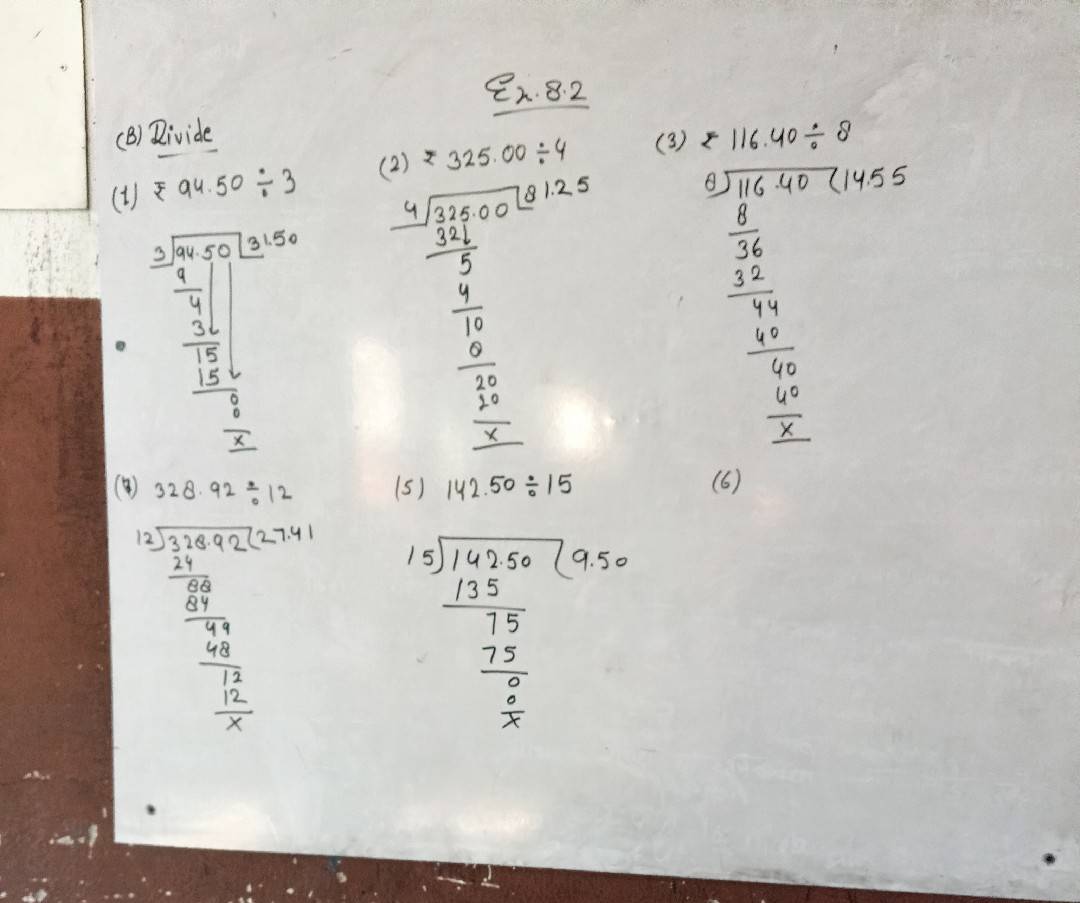 Ex. 8.2
(B) Divide
(1) ₹ 94.50 ÷ 3
3 94.50 31.50
9
4
3
15
15
0
0
x
(2) ₹ 325.00 ÷ 4
4 325.00 81.25
32
5
4
10
8
20
20
x
(3) ₹ 116.40 ÷ 8
8 116.40 14.55
8
36
32
44
40
40
40
x
(4) 328.92 ÷ 12
12 328.92 27.41
24
88
84
49
48
12
12
x
(5) 142.50 ÷ 15
15 142.50 9.50
135
75
75
0
0
x
(6)